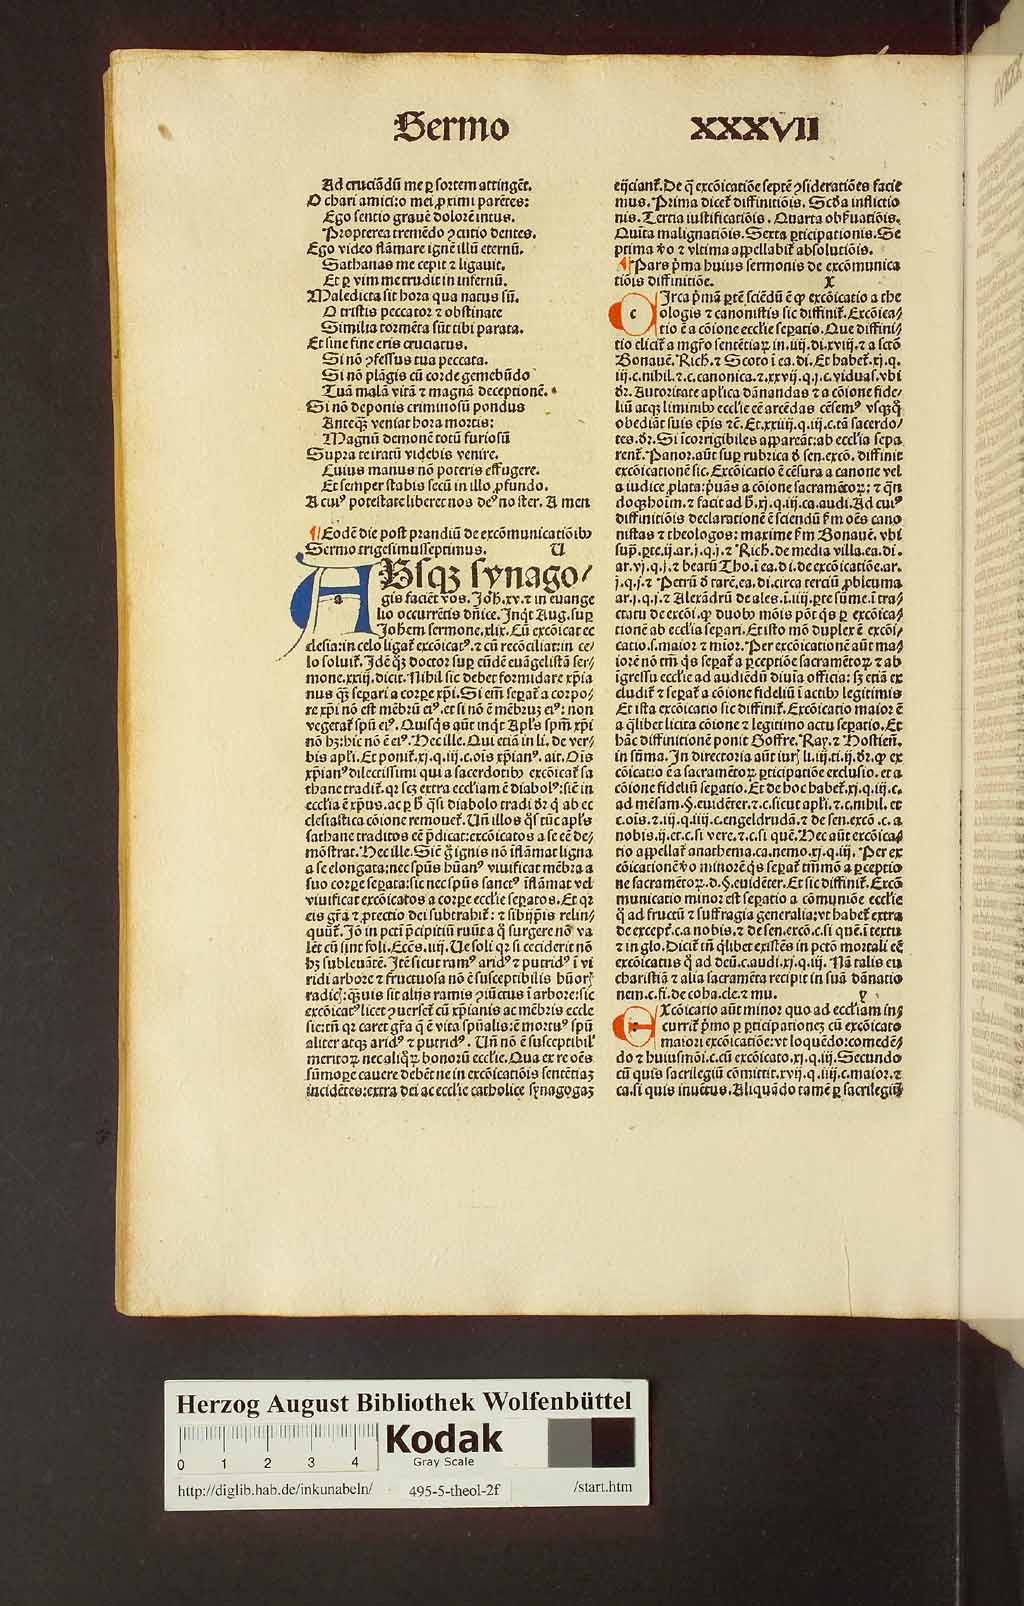 Sermo XXXVII
Ad cruciãdũ me ꝑ sortem attingẽt.
O chari amici: o mei ꝓximi parẽtes:
Ego sentio grauẽ dolorẽ intus.
Propterea tremẽdo ꝛcutio dentes.
Ego video flãmare ignẽ illũ eternũ.
Sathanas me cepit ⁊ ligauit.
Et ꝑ vim me trudit in infernũ.
Maledicta sit hora qua natus sũ.
O tristis peccator ⁊ obstinate
Similia tormẽta sũt tibi parata.
Et sine fine eris cruciatus.
Si nõ ꝯfessus tua peccata.
Si nõ plãgis cũ corde gemebũdo
Tuã malã vitã ⁊ magnã deceptionẽ.
Si nõ deponis criminosũ pondus
Anteqꝫ veniat hora mortis:
Magnũ demonẽ totũ furiosũ
Supra te iratũ videbis venire.
Cuius manus nõ poteris effugere.
Et semper stabis secũ in illo ꝓfundo.
A cuiꝰ potestate liberet nos deꝰ noster. Amen
¶ Eodẽ die post prandiũ de excõmunicationibꝫ
Sermo trigesimusseptimus. U
ABsqꝫ synago/
gis faciẽt vos. Joh̃. xv. ⁊ in euange
lio occurrẽtis dñice. Inqt Aug. sup
Johem sermone. xlix. Cũ excõicat ec
clesia: in celo ligat̃ excõicatꝰ. ⁊ cũ recõciliat: in ce/
lo soluit̃. Idẽ qꝫ doctor sup eũdẽ euãgelistã ser/
mone. xxij. dicit. Nihil sic debet formidare xp̃ia
nus qꝫ separi a corꝑe xp̃i. Si em̃ sepat̃ a corpo/
re xp̃i nõ est mẽbrũ eiꝰ. et si nõ ẽ mẽbrũ eiꝰ: non
vegetat̃ spũ eiꝰ. Quisqs aũt inqt Apl's spm̃ xp̃i
nõ hꝫ: hic nõ ẽ eiꝰ. Hec ille. Qui etiã in li. de ver/
bis apl'i. Et ponit̃. xj. q. iij. c. ois xp̃ianꝰ. ait. Ois
xp̃ianꝰ dilectissimi qui a sacerdotibꝫ excõicat̃ sa
thane tradit̃. qr scꝫ extra eccl'iam ẽ diabolꝰ: sic̃ in
eccl'ia ẽ xp̃us. ac ꝑ h̃ q̃si diabolo tradi dr̃ q̃ ab ec
clesiastica cõione remouet̃. Vñ illos q̃s tũc apl's
sathane traditos eẽ p̃dicat: excõicatos a se eẽ de/
mõstrat. Hec ille. Sic̃ g̃ ignis nõ ĩflãmat ligna
a se elongata: nec spũs hũanꝰ viuificat mẽbra a
suo corꝑe seꝑata: sic nec spũs sanctꝰ ĩflãmat vel
viuificat excõicatos a corꝑe eccl'ie seꝑatos. Et qr
eis gr̃a ⁊ ꝓtectio dei subtrahit̃: ⁊ sibijp̃is relin/
quũt̃. Jõ in pctĩ p̃cipitiũ ruũt a q̃ surgere nõ va
lẽt cũ sint soli. Eccẽs. iiij. Ue soli qr si ceciderit nõ
hꝫ subleuãtẽ. Itẽ sicut ramꝰ aridꝰ ⁊ putridꝰ ĩ vi
ridi arbore ⁊ fructuosa nõ ẽ susceptibilis hũoꝝ
radicꝝ: q̃uis sit alijs ramis ꝯiũctus ĩ arbore: sic
excõicatꝰ licet ꝯuerset̃ cũ xp̃ianis ac mẽbris eccle
sie: tñ qr caret gr̃a q̃ ẽ vita spũalis: ẽ mortuꝰ spũ
aliter atqꝫ aridꝰ ⁊ putridꝰ. Vñ nõ ẽ susceptibil'
meritoꝝ nec aliq̃ꝝ bonorũ eccl'ie. Qua ex re oẽs
sũmoꝑe cauere debẽt ne in excõicatiõis sentẽtiaꝫ
incidẽtes: extra dei ac eccl'ie catholice synagogaꝫ
eijciant̃. De q̃ excõicatiõe septẽ ꝯsideratiões facie
mus. Prima dicet̃ diffinitiõis. Scd̃a inflictio
nis. Tertia iustificatiõis. Quarta obßuatiõis.
Quĩta malignatiõis. Sexta ꝑticipationis. Se
ptima ṽo ⁊ vltima appellabit̃ absolutiõis.
¶ Pars p̃ma huius sermonis de excõmunica
tiõis diffinitiõe. X
CIrca p̃mã ꝑtẽ sciẽdũ ẽ ꝙ excõicatio a the
ologis ⁊ canonistis sic diffinit̃. Excõica/
tio ẽ a cõione eccl'ie seꝑatio. Que diffini/
tio elicit̃ a mgr̃o sentẽtiaꝝ in. iiij. di. xviij. ⁊ a scto
Bonauẽ. Rich̃. ⁊ Scoto ĩ ea. di. Et habet̃. xj. q.
iij. c. nihil. ⁊. c. canonica. ⁊. xxvij. q. j. c. viduas. vbi
dr̃. Autoritate apl'ica dãnandas ⁊ a cõione fide/
liũ atqꝫ liminibꝫ eccl'ie eẽ arcẽdas cẽsemꝰ vsqꝫq̃
obediãt suis ep̃is ⁊c̃. Et. xxiiij. q. iij. c. tã sacerdo/
tes. dr̃. Si ĩcorrigibiles appareãt: ab eccl'ia sepa
rent̃. Panor. aũt sup rubrica d̃ sen. excõ. diffinit
excõicationẽ sic. Excõicatio ẽ cẽsura a canone vel
a iudice ꝓlata: p̃uãs a cõione sacramẽtoꝝ: ⁊ qñ
doqꝫ hoim. ⁊ facit ad h̃. xj. q. iij. ca. audi. Ad cuiꝰ
diffinitiõis declarationẽ ẽ sciendũ ẜm oẽs cano
nistas ⁊ theologos: maxime ẜm Bonauẽ. vbi
sup̃. ꝑte. ij. ar. j. q. j. ⁊ Rich̃. de media villa. ea. di.
ar. vj. q. j. ⁊ beatũ Tho. ĩ ea. di. de excõicatiõe. ar.
j. q. j. ⁊ Petrũ d̃ tarẽ. ea. di. circa terciũ ꝓbleuma
ar. j. q. j. ⁊ Alexãdrũ de ales. ĩ. iiij. ꝑte sũme. ĩ tra/
ctatu de excõi. ꝙ duobꝫ mõis põt q̃s ꝑ excõica/
tionẽ ab eccl'ia seꝑari. Et isto mõ duplex ẽ excõi/
catio. s. maior ⁊ mior. Per excõicationẽ aũt ma/
iorẽ nõ tm̃ q̃s seꝑat̃ a ꝑceptiõe sacramẽtoꝝ ⁊ ab
igressu eccl'ie ad audiẽdũ diuĩa officia: sꝫ etiã ex
cludit̃ ⁊ seꝑat̃ a cõione fideliũ ĩ actibꝫ legitimis
Et ista excõicatio sic diffinit̃. Excõicatio maior ẽ
a q̃libet licita cõione ⁊ legitimo actu seꝑatio. Et
hãc diffinitionẽ ponit Goffre. Ray. ⁊ Hostieñ.
in sũma. In directoria aũt iurꝭ li. iij. ti. ij. dr̃. ꝙ ex
cõicatio ẽ a sacramẽtoꝝ ꝑticipatiõe exclusio. et a
cõione fideliũ seꝑatio. Et de hoc habet̃. xj. q. iij. c.
ad mẽsam. §. euidẽter. ⁊. c. sicut apl'i. ⁊. c. nihil. et
c. ois. ⁊. iij. q. iiij. c. engeldrudã. ⁊ de sen. excõ. c. a
nobis. ij. et. c. si vere. ⁊. c. si quẽ. Hec aũt excõica/
tio appellat̃ anathema. ca. nemo. xj. q. iij. Per ex
cõicationẽ ṽo minorẽ q̃s seꝑat̃ tm̃mõ a ꝑceptio
ne sacramẽtoꝝ. d. §. euidẽter. Et sic diffinit̃. Excõ
municatio minor est seꝑatio a cõmuniõe eccl'ie
q̃ ad fructũ ⁊ suffragia generalia: vt habet̃ extra
de except̃. c. a nobis. ⁊ de sen. excõ. c. si quẽ. ĩ textu
⁊ in glo. Dicit̃ tñ q̃libet existẽs in pctõ mortali eẽ
excõicatus q̃ ad deũ. c. audi. xj. q. iij. Nã talis eu
charistiã ⁊ alia sacramẽta recipit in suã dãnatio
nem. c. fi. de coha. cle. ⁊ mu. Y
EXcõicatio aũt minor quo ad eccl'iam in/
currit̃ p̃mo ꝑ ꝑticipationeꝫ cũ excõicato
maiori excõicatiõe: vt loquẽdo: comedẽ/
do ⁊ huiusmõi. c. cũ excõicato. xj. q. iij. Secundo
cũ quis sacrilegiũ cõmittit. xvij. q. iiij. c. maior. ⁊
ca. si quis inuẽtus. Aliquãdo tamẽ ꝑ sacrilegiũ
Herzog August Bibliothek Wolfenbüttel
0 1 2 3 4
Kodak
Gray Scale
http://diglib.hab.de/inkunabeln/ 495-5-theol-2f /start.htm